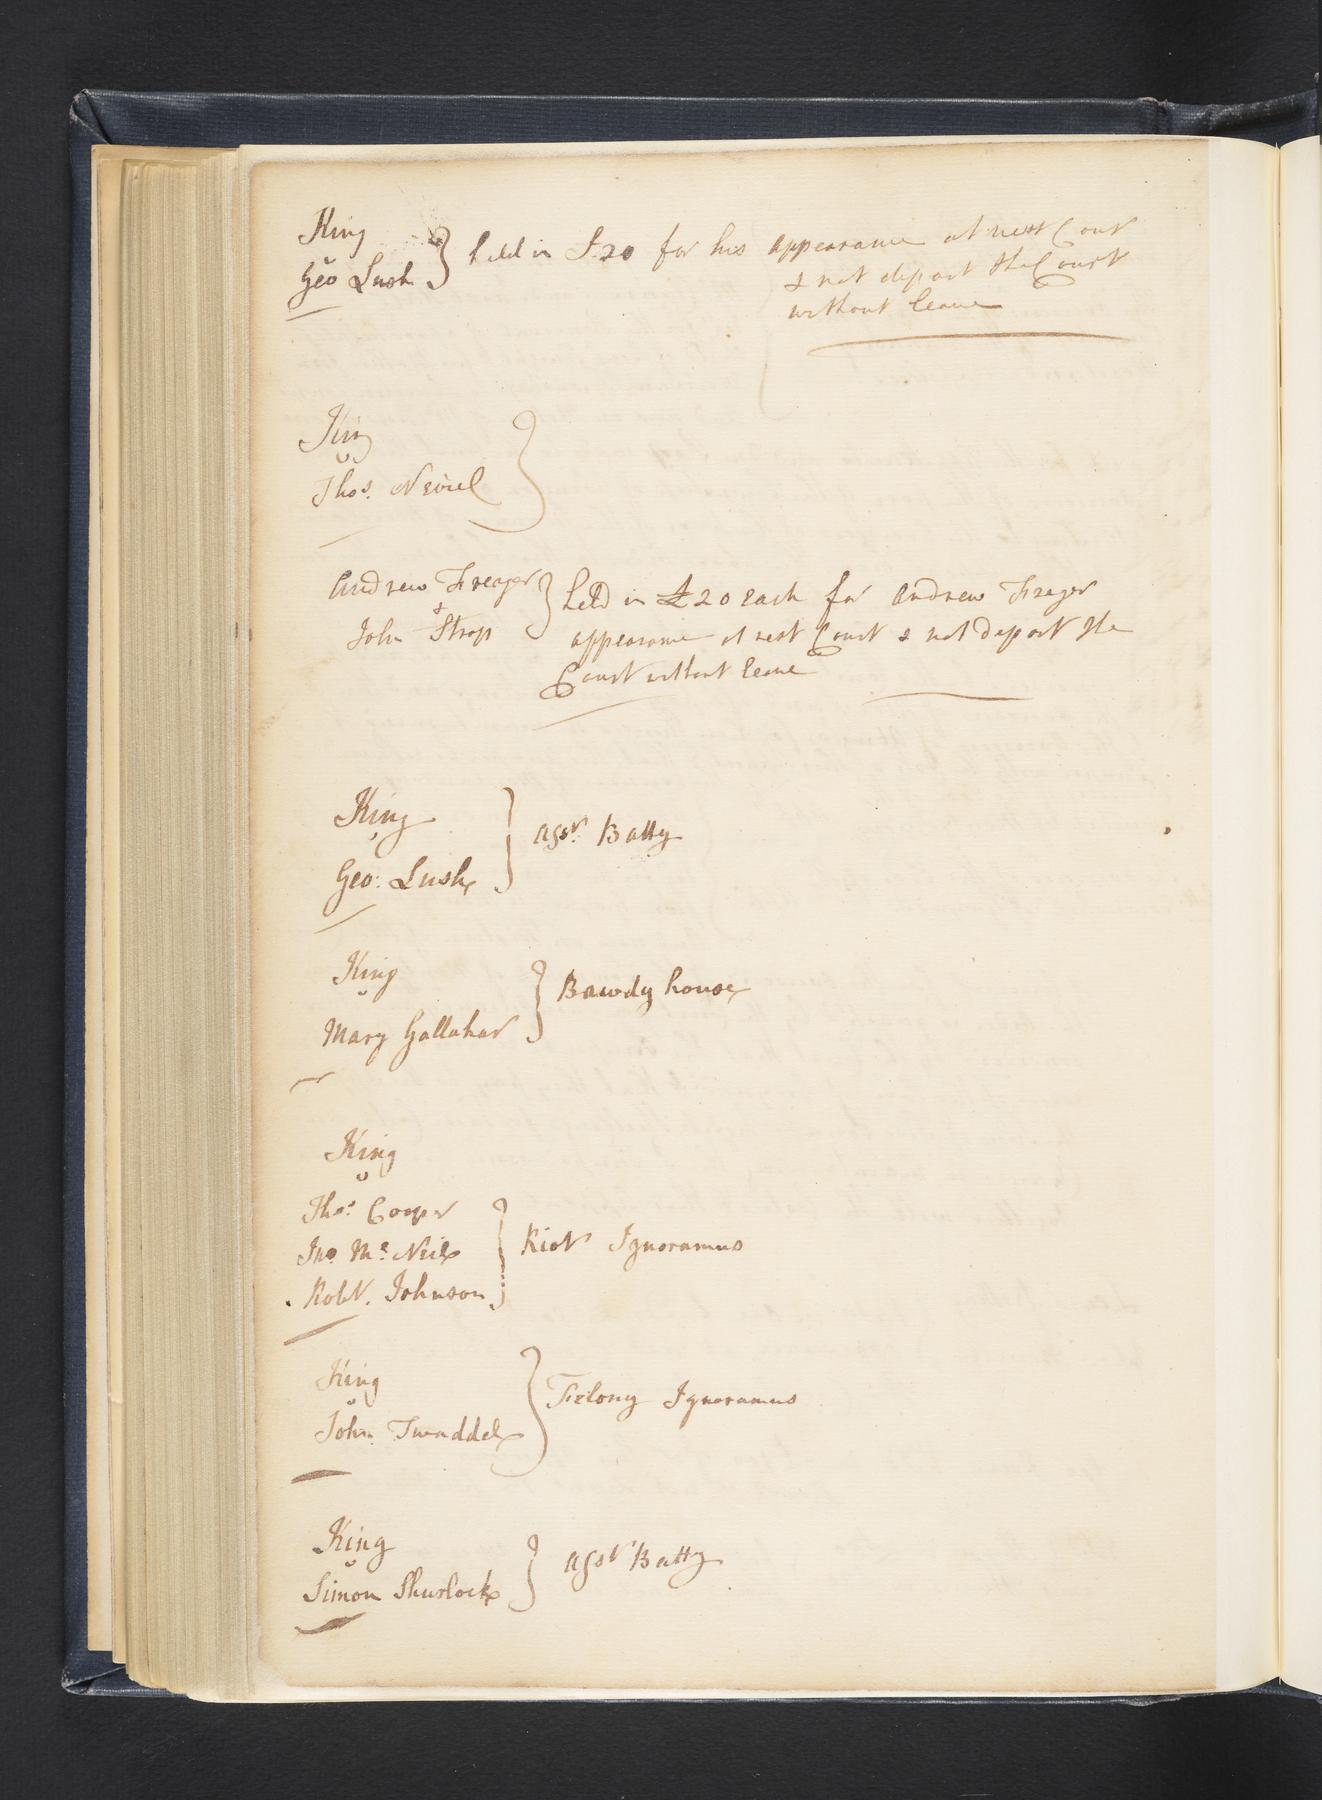 King
v
Geo Lush } held in £20 for his appearance at next Court
& not depart the Court
without leave
King
v
Thos. Neviel }
Andrew Treger
&
John Strop } held in £20 Each for Andrew Treger
appearance at next Court & not depart the
Court without leave
King
v
Geo: Lush } Asst. Batty
King
v
Mary Gallahar } Bawdy house
King
v
Thos: Cooper
Jno Mc Neil
Robt. Johnson } Riot Ignoramus
King
v
John Twaddel } Felony Ignoramus
King
v
Simon Shurlock } Asst Batty